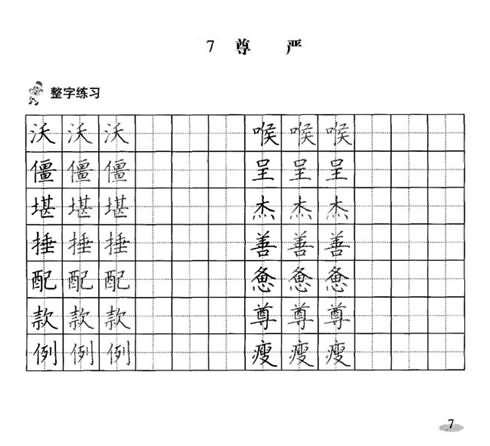 7 尊 严
整字练习
沃 沃 沃 喉 喉 喉
僵 僵 僵 呈 呈 呈
堪 堪 堪 杰 杰 杰
捶 捶 捶 善 善 善
配 配 配 惫 惫 惫
款 款 款 尊 尊 尊
例 例 例 瘦 瘦 瘦
7